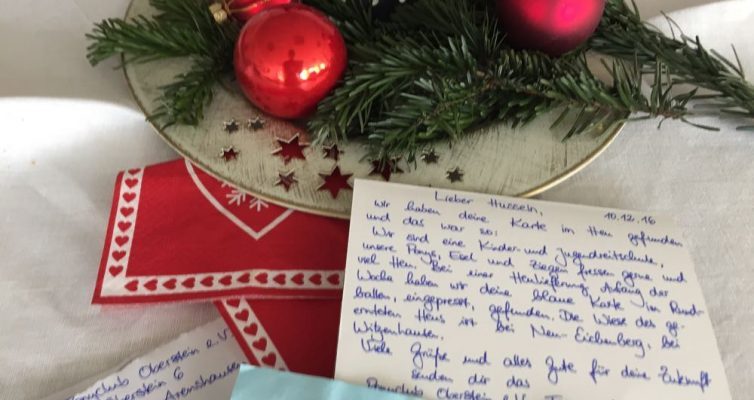 Lieber Hussein,
10.12.16
wir haben deine Karte im Heu gefunden
und das war so:
Wir sind eine Kinder- und Jugendreitschule,
unsere Ponys, Esel und Ziegen fressen gerne und
viel Heu. Bei einer Heulieferung Anfang der
Woche haben wir deine blaue Karte im Rund-
ballen, eingepresst, gefunden. Die Wiese des ge-
ernteten Heus ist bei Neu-Eichenberg, bei
Witzenhausen.
Viele Grüße und alles Gute für deine Zukunft
senden dir das
Ponyclub Oberstein e.V.
Ponyclub Oberstein e.V.
Oberstein 6